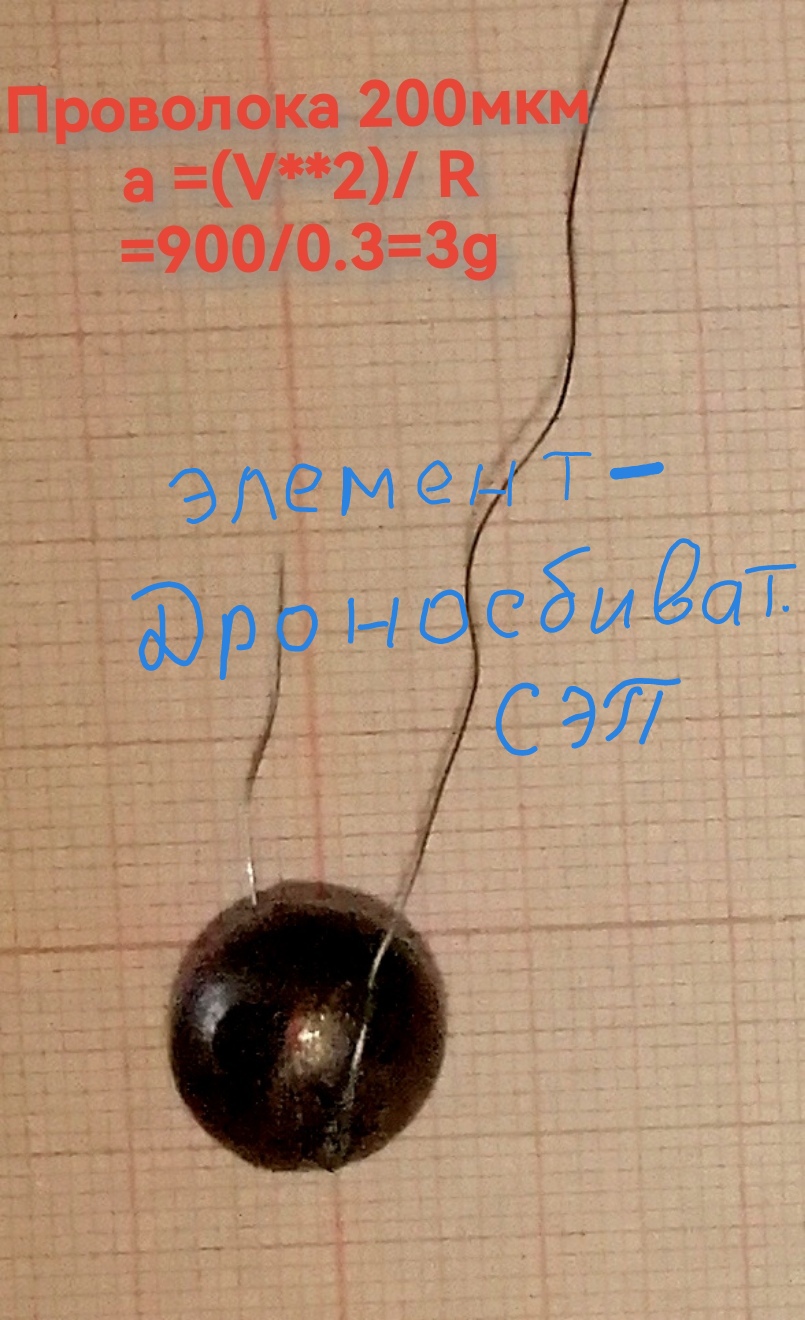 Проволока 200мкм
a =(V**2)/ R
=900/0.3=3g
элемент-
Дроносбиват.
СЭП